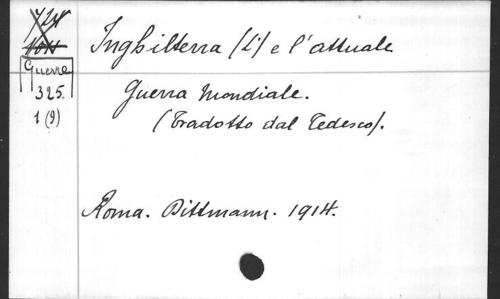 Inghilterra (L') e l'attuale
Guerra
325.
1(9)
Guerra Mondiale.
(Tradotto dal Tedesco).
Roma. Dittmann. 1914.